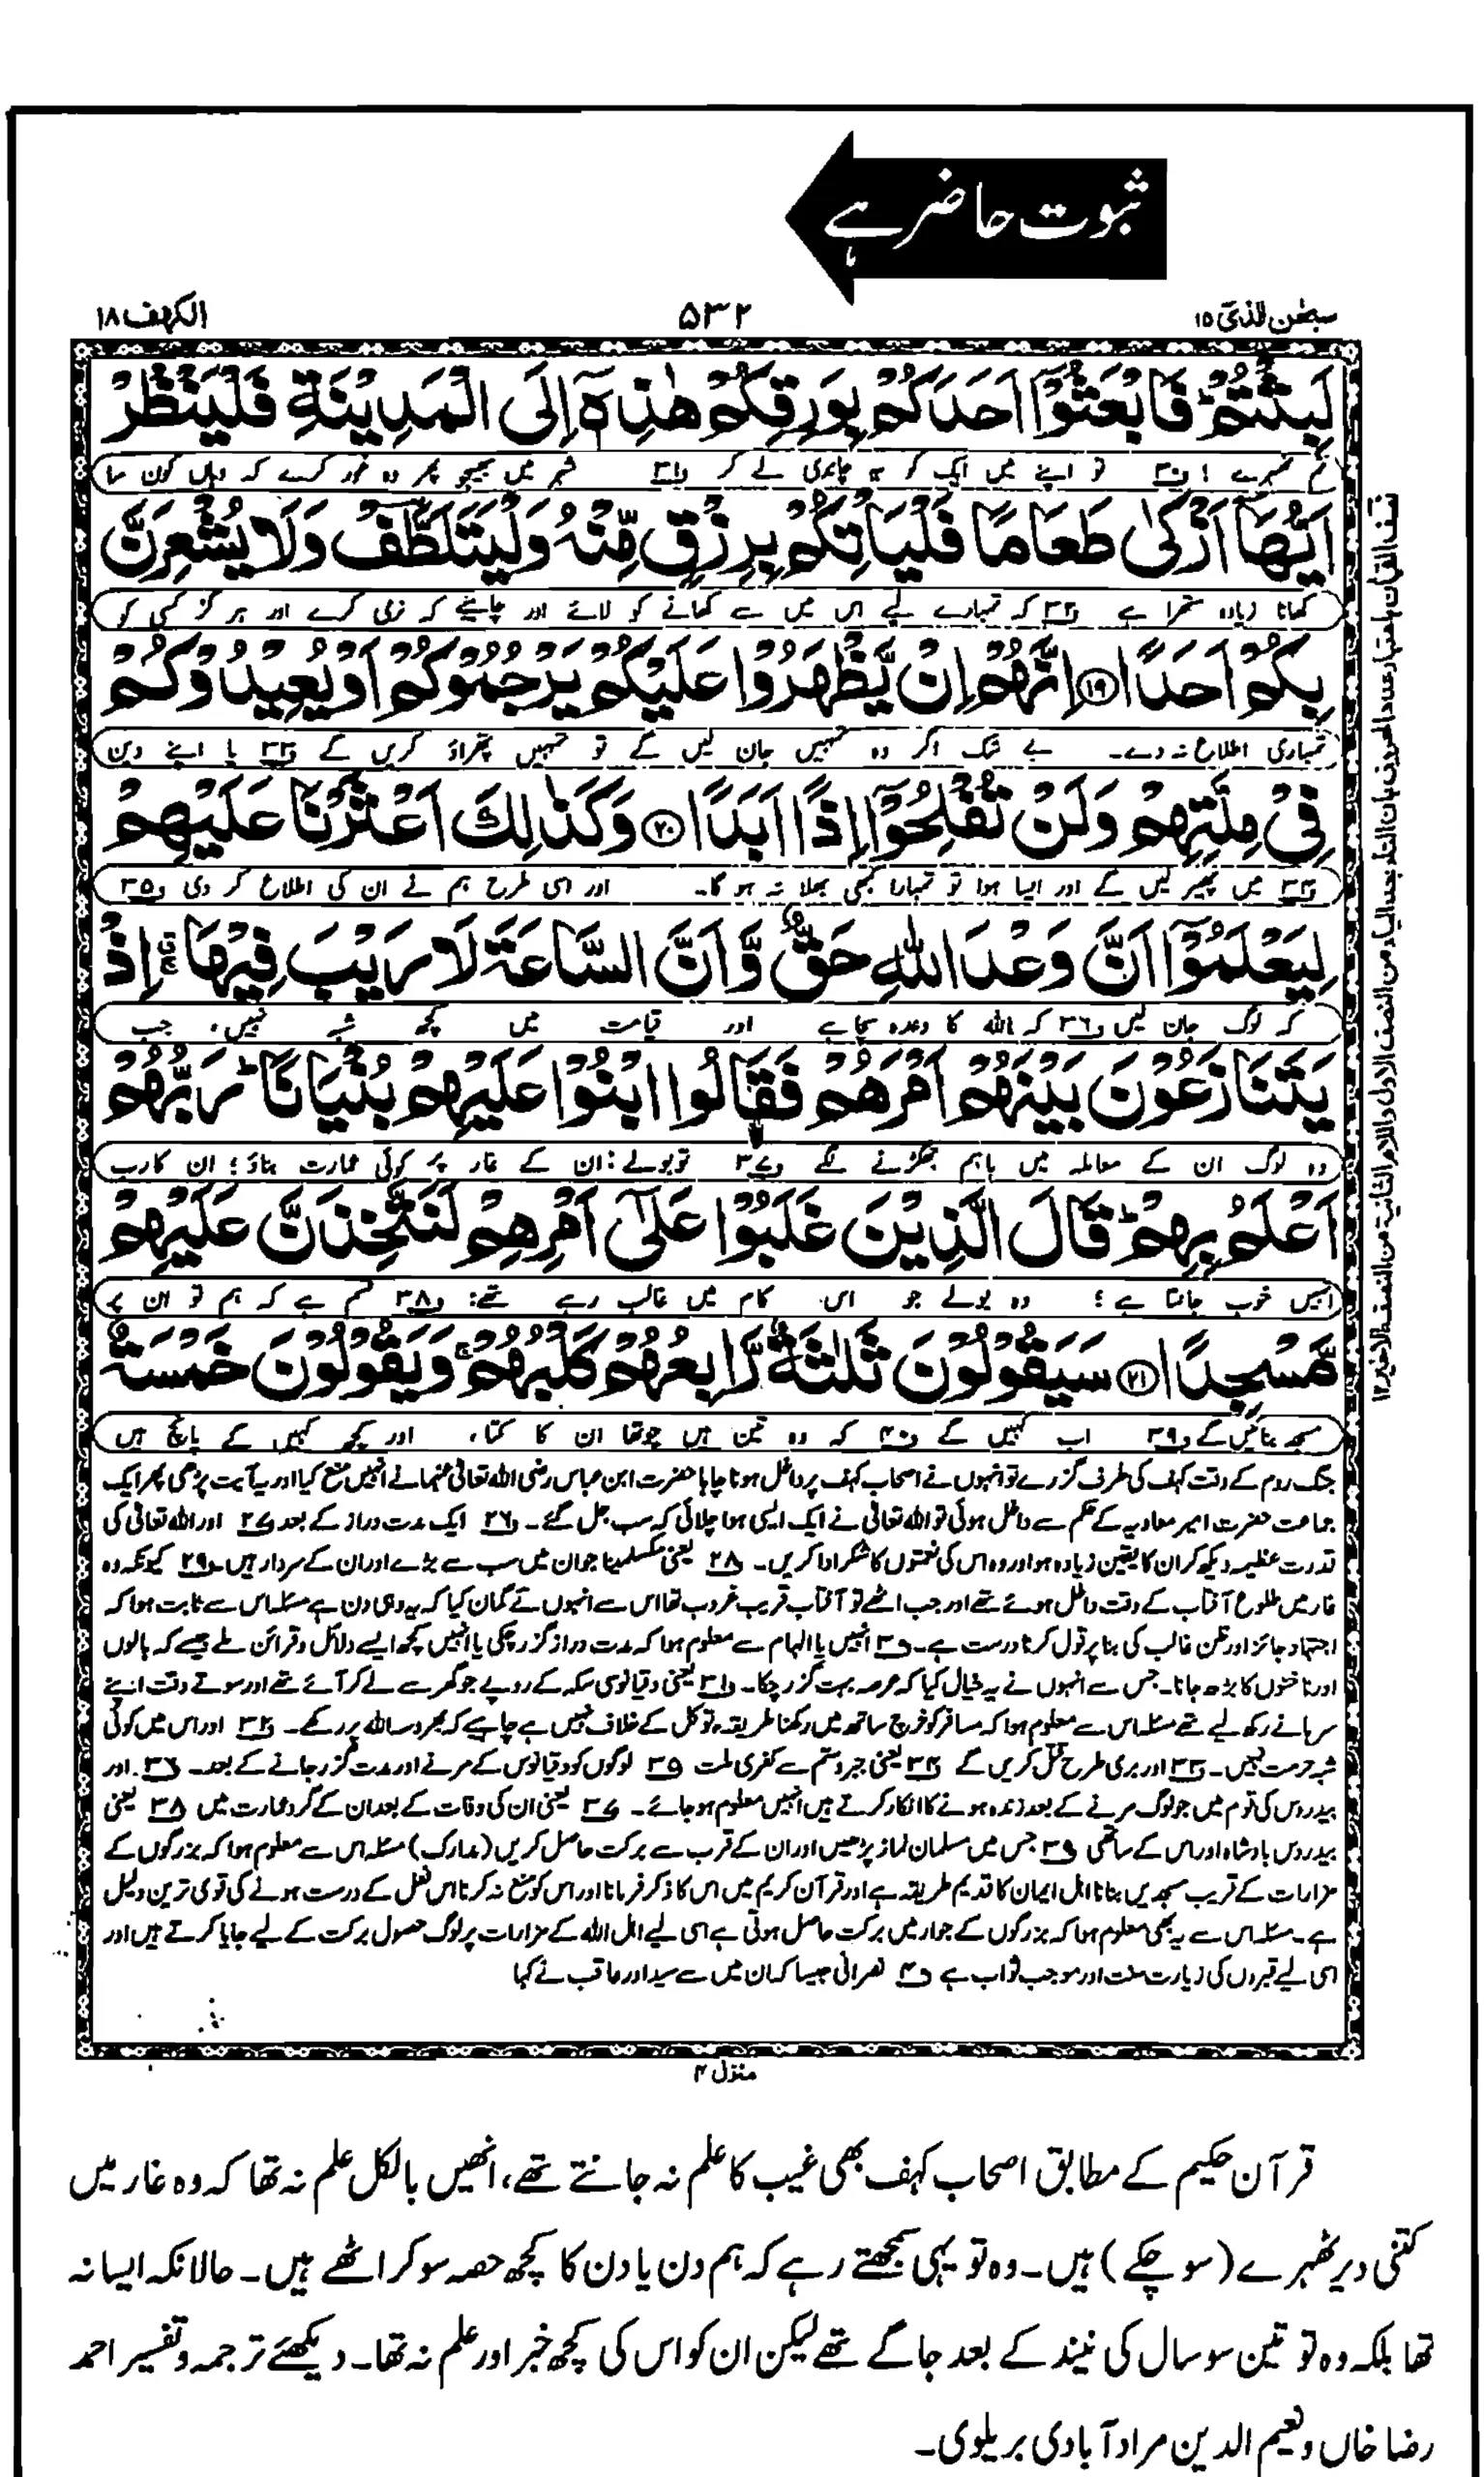 ثبوت حاضر ہے
سبحٰن الذیٓ ۱۵
۵۳۲
الکہف ۱۸
لَبِثْتُمْ ؕ فَابْعَثُوْۤا اَحَدَكُمْ بِوَرِقِكُمْ هٰذِهٖۤ اِلَى الْمَدِیْنَةِ فَلْیَنْظُرْ
تم ٹھہرے ؛ ف۳۰ تو اپنے میں ایک کو یہ چاندی لے کر ف۳۱ شہر میں بھیجو پھر وہ غور کرے کہ وہاں کون سا
اَیُّهَاۤ اَزْكٰى طَعَامًا فَلْیَاْتِكُمْ بِرِزْقٍ مِّنْهُ وَلْیَتَلَطَّفْ وَلَا یُشْعِرَنَّ
کھانا زیادہ ستھرا ہے ف۳۲ کہ تمہارے لیے اس میں سے کھانے کو لائے اور چاہئے کہ نرمی کرے اور ہر گز کسی کو
بِكُمْ اَحَدًا ۝۱۹ اِنَّهُمْ اِنْ یَّظْهَرُوْا عَلَیْكُمْ یَرْجُمُوْكُمْ اَوْ یُعِیْدُوْكُمْ
تمہاری اطلاع نہ دے۔ بے شک اگر وہ تمہیں جان لیں گے تو تمہیں پتھراؤ کریں گے ف۳۳ یا اپنے دین
فِیْ مِلَّتِهِمْ وَلَنْ تُفْلِحُوْۤا اِذًا اَبَدًا ۝۲۰ وَكَذٰلِكَ اَعْثَرْنَا عَلَیْهِمْ
ف۳۴ میں پھیر لیں گے اور ایسا ہوا تو تمہارا کبھی بھلا نہ ہو گا۔ اور اسی طرح ہم نے ان کی اطلاع کر دی ف۳۵
لِیَعْلَمُوْۤا اَنَّ وَعْدَ اللّٰهِ حَقٌّ وَّاَنَّ السَّاعَةَ لَا رَیْبَ فِیْهَا ۚ اِذْ
کہ لوگ جان لیں ف۳۶ کہ اللہ کا وعدہ سچا ہے اور قیامت میں کچھ شبہ نہیں، جب
یَتَنَازَعُوْنَ بَیْنَهُمْ اَمْرَهُمْ فَقَالُوا ابْنُوْا عَلَیْهِمْ بُنْیَانًا ؕ رَبُّهُمْ
وہ لوگ ان کے معاملہ میں باہم جھگڑنے لگے ف۳۷ تو بولے: ان کے غار پر کوئی عمارت بناؤ؛ ان کا رب
اَعْلَمُ بِهِمْ ؕ قَالَ الَّذِیْنَ غَلَبُوْا عَلٰۤى اَمْرِهِمْ لَنَتَّخِذَنَّ عَلَیْهِمْ
انہیں خوب جانتا ہے؛ وہ بولے جو اس کام میں غالب رہے تھے: ف۳۸ قسم ہے کہ ہم تو ان پر
مَّسْجِدًا ۝۲۱ سَیَقُوْلُوْنَ ثَلٰثَةٌ رَّابِعُهُمْ كَلْبُهُمْ ۚ وَیَقُوْلُوْنَ خَمْسَةٌ
مسجد بنائیں گے ف۳۹ اب کہیں گے ف۴۰ کہ وہ تین ہیں چوتھا ان کا کتا، اور کچھ کہیں گے پانچ ہیں
جنگ روم کے وقت کہف کی طرف گزرے تو انہوں نے اصحاب کہف پر داخل ہونا چاہا حضرت ابن عباس رضی اللہ تعالیٰ عنہما نے انہیں منع کیا اور یہ آیت پڑھی پھر ایک
جماعت حضرت امیر معاویہ کے حکم سے داخل ہوئی تو اللہ تعالیٰ نے ایک ایسی ہوا چلائی کہ سب جل گئے۔ ف۲۶ ایک مدت دراز کے بعد ف۲۷ اور اللہ تعالیٰ کی
قدرت عظیمہ دیکھ کر ان کا یقین زیادہ ہو اور وہ اس کی نعمتوں کا شکر ادا کریں۔ ف۲۸ یعنی مکسلمینا جو ان میں سب سے بڑے اور ان کے سردار ہیں۔ ف۲۹ کیونکہ وہ
غار میں طلوع آفتاب کے وقت داخل ہوئے تھے اور جب اٹھے تو آفتاب قریب غروب تھا اس سے انہوں نے گمان کیا کہ یہ وہی دن ہے مسئلہ اس سے ثابت ہوا کہ
اجتہاد جائز اور ظن غالب کی بنا پر قول کرنا درست ہے۔ ف۳۰ انہیں یا الہام سے معلوم ہوا کہ مدت دراز گزر چکی یا انہیں کچھ ایسے دلائل و قرائن ملے جیسے کہ بالوں
اور ناخنوں کا بڑھ جانا۔ جس سے انہوں نے یہ خیال کیا کہ عرصہ بہت گزر چکا۔ ف۳۱ یعنی دقیانوسی سکہ کے روپے جو گھر سے لے کر آئے تھے اور سوتے وقت اپنے
سرہانے رکھ لیے تھے مسئلہ اس سے معلوم ہوا کہ مسافر کو خرچ ساتھ میں رکھنا طریقہ توکل کے خلاف نہیں ہے چاہیے کہ بھروسہ اللہ پر رکھے۔ ف۳۲ اور اس میں کوئی
شبہ حرمت نہیں۔ ف۳۳ اور بری طرح قتل کریں گے ف۳۴ یعنی جبر و ستم سے کفری ملت ف۳۵ لوگوں کو دقیانوس کے مرنے اور مدت گزر جانے کے بعد۔ ف۳۶ اور
بیدروس کی قوم میں جو لوگ مرنے کے بعد زندہ ہونے کا انکار کرتے ہیں انہیں معلوم ہو جائے۔ ف۳۷ یعنی ان کی وفات کے بعد ان کے گرد عمارت میں ف۳۸ یعنی
بیدروس بادشاہ اور اس کے ساتھی ف۳۹ جس میں مسلمان نماز پڑھیں اور ان کے قرب سے برکت حاصل کریں (مدارک) مسئلہ اس سے معلوم ہوا کہ بزرگوں کے
مزارات کے قریب مسجدیں بنانا اہل ایمان کا قدیم طریقہ ہے اور قرآن کریم میں اس کا ذکر فرمانا اور اس کو منع نہ کرنا اس فعل کے درست ہونے کی قوی ترین دلیل
ہے۔ مسئلہ اس سے یہ بھی معلوم ہوا کہ بزرگوں کے جوار میں برکت حاصل ہوتی ہے اسی لیے اہل اللہ کے مزارات پر لوگ حصول برکت کے لیے جایا کرتے ہیں اور
اسی لیے قبروں کی زیارت سنت اور موجب ثواب ہے ف۴۰ نصرانی جیسا کہ ان میں سے سید اور عاقب نے کہا
منزل ۴
قرآن حکیم کے مطابق اصحاب کہف بھی غیب کا علم نہ جانتے تھے، انھیں بالکل علم نہ تھا کہ وہ غار میں
کتنی دیر ٹھہرے (سو چکے) ہیں۔ وہ تو یہی سمجھتے رہے کہ ہم دن یا دن کا کچھ حصہ سو کر اٹھے ہیں۔ حالانکہ ایسا نہ
تھا بلکہ وہ تو تین سو سال کی نیند کے بعد جاگے تھے لیکن ان کو اس کی کچھ خبر اور علم نہ تھا۔ دیکھئے ترجمہ و تفسیر احمد
رضا خاں و نعیم الدین مراد آبادی بریلوی۔